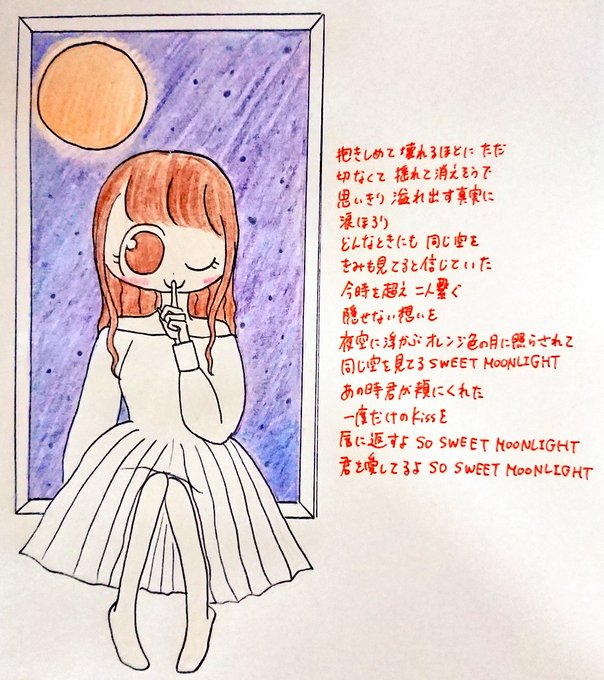 抱きしめて 壊れるほどに ただ
切なくて 揺れて消えそうで
思いきり 溢れ出す真実に
涙ほろり
どんなときにも 同じ空を
きみも見てると信じていた
今時を超え 二人繋ぐ
隠せない想いを
夜空に浮かぶ オレンジ色の月に照らされて
同じ空を見てる SWEET MOONLIGHT
あの時君が頬にくれた
一度だけのKissを
唇に返すよ SO SWEET MOONLIGHT
君を愛してるよ SO SWEET MOONLIGHT